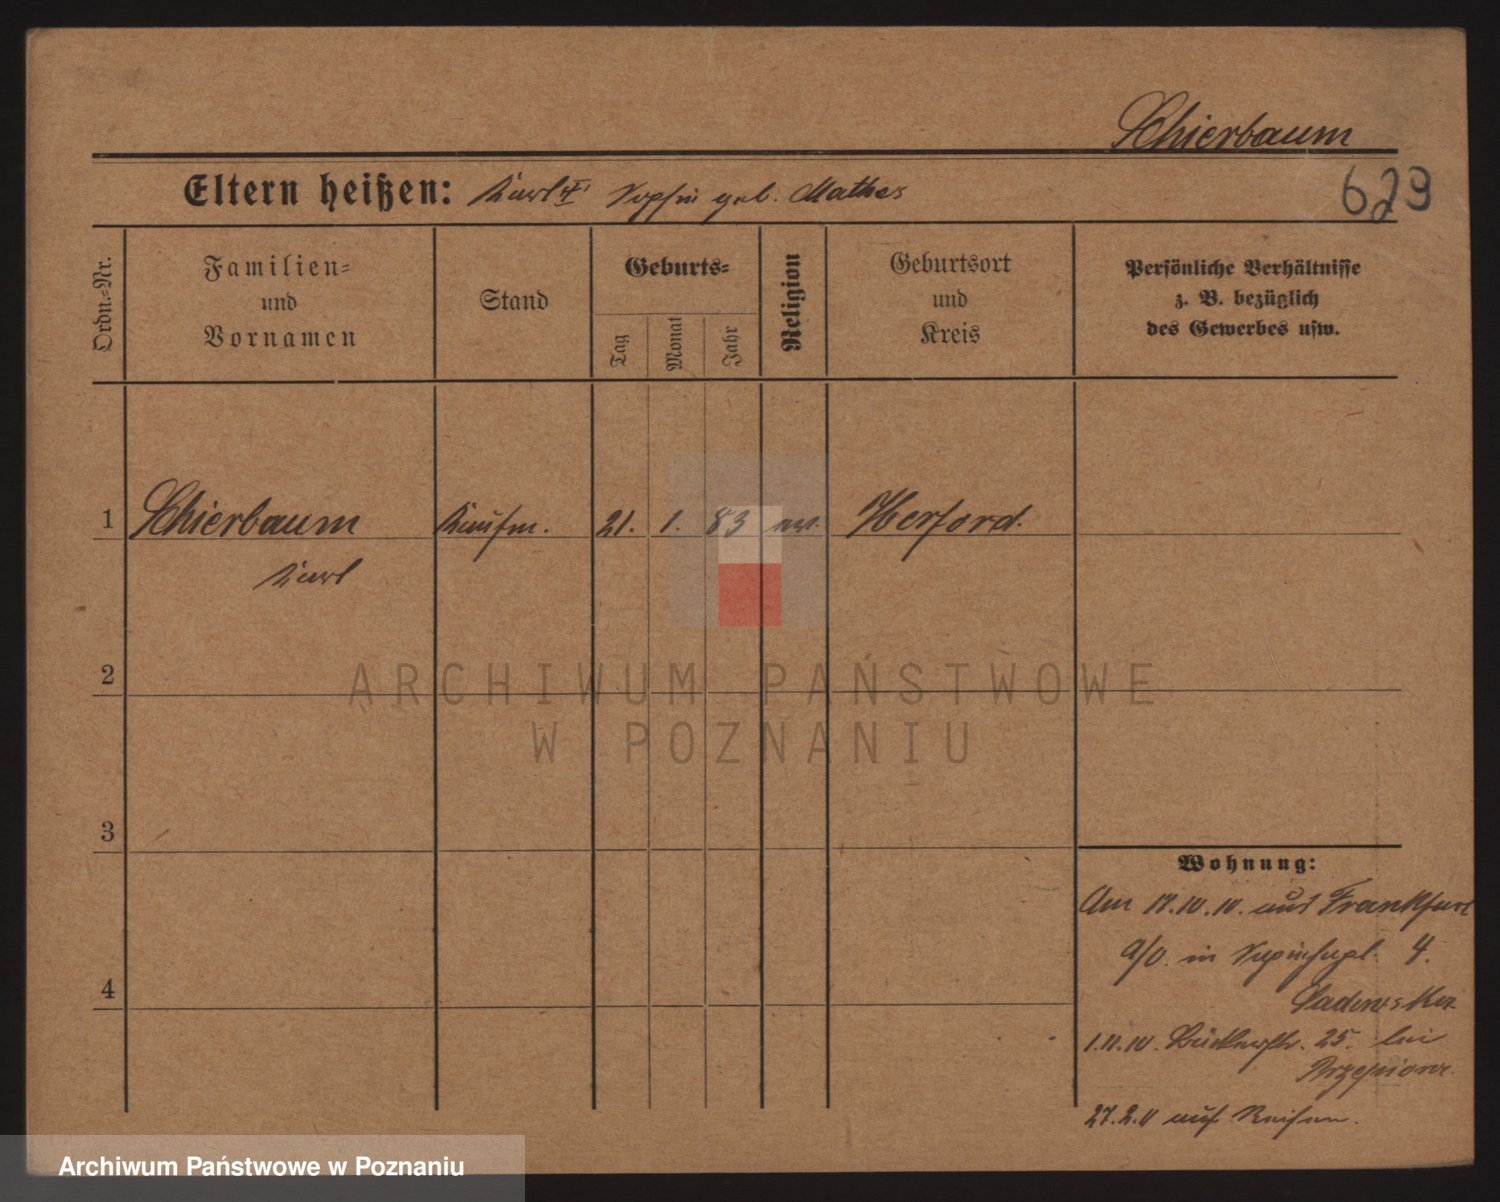 Schierbaum
Eltern heißen: Karl u. Sophie geb. Mathes
629
Ordn.-Nr.
Familien-
und
Vornamen
Stand
Geburts-
Tag
Monat
Jahr
Religion
Geburtsort
und
Kreis
Persönliche Verhältnisse
z. B. bezüglich
des Gewerbes usw.
1 Schierbaum Kaufm. 21. 1. 83 ev. Herford.
Karl
2
ARCHIWUM PAŃSTWOWE
W POZNANIU
3
Wohnung:
Am 17.10.10. aus Frankfurt
a/O. in 4.
4
1.11.10. 25. bei
27.2.11 auf Reisen.
Archiwum Państwowe w Poznaniu